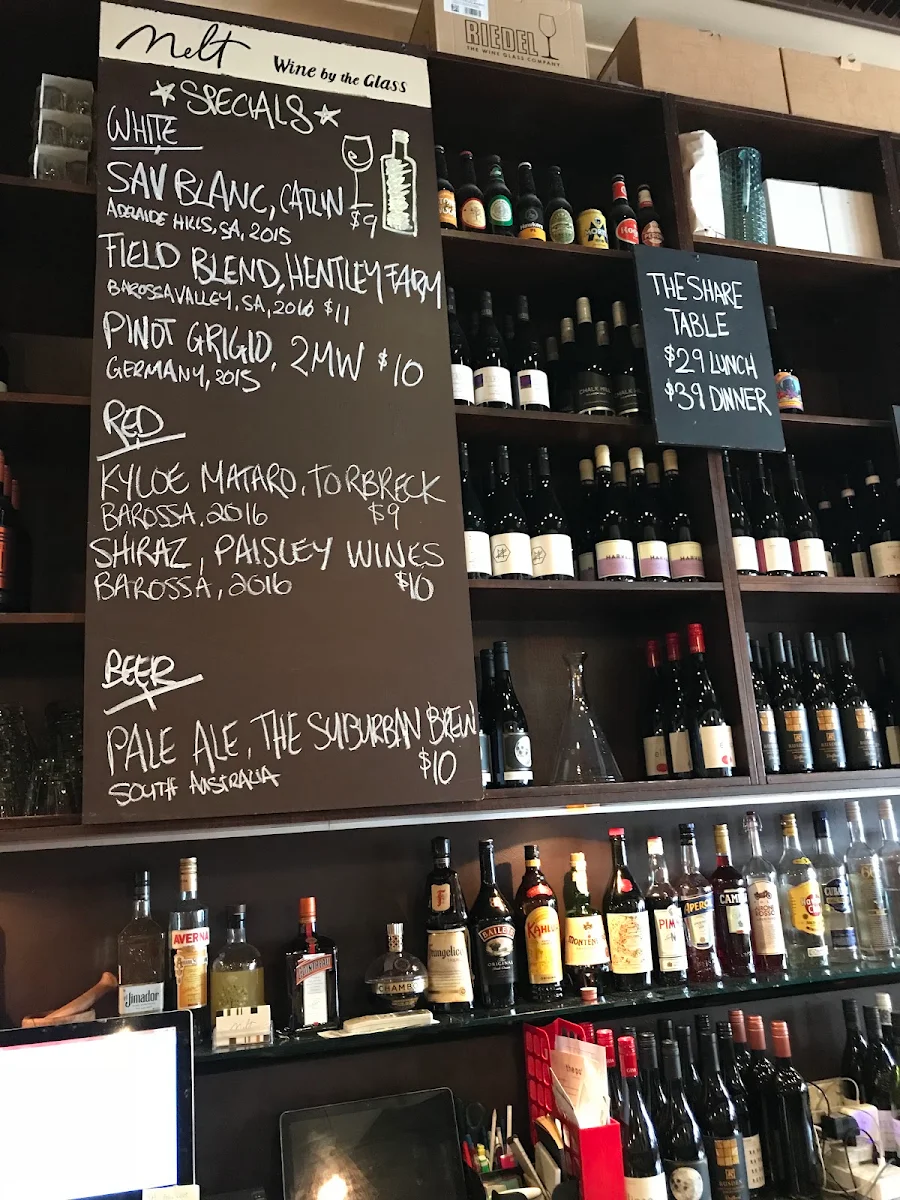 melt
Wine by the Glass
SPECIALS
WHITE
SAV BLANC, CATLIN
ADELAIDE HILLS, SA, 2015 $9
FIELD BLEND, HENTLEY FARM
BAROSSA VALLEY, SA, 2016 $11
PINOT GRIGIO, 2MW $10
GERMANY, 2015
RED
KYLOE MATARO, TORBRECK
BAROSSA, 2016 $9
SHIRAZ, PAISLEY WINES
BAROSSA, 2016 $10
BEER
PALE ALE, THE SUBURBAN BREW
$10
SOUTH AUSTRALIA
RIEDEL
THE WINE GLASS COMPANY
THE SHARE
TABLE
$29 LUNCH
$39 DINNER
CHALK HILL
el Jimador
AVERNA
COINTREAU
CHAMBORD
Frangelico
BAILEYS
ORIGINAL
KAHLÚA
MONTENEGRO
PIMM
APEROL
CAMPARI
melt